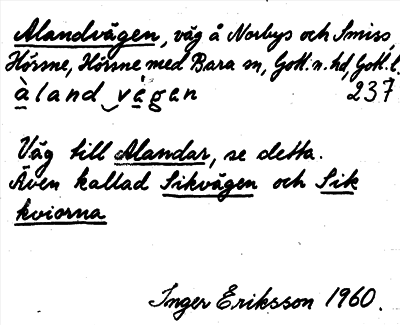 Alandvägen, väg å Norbys och Smiss,
Hörsne, Hörsne med Bara sn, Gotl. n. hd, Gotl. l.
àland vägen 237
Väg till Alandar, se detta.
Även kallad Sikvägen och Sik
kviorna
Inger Eriksson 1960.